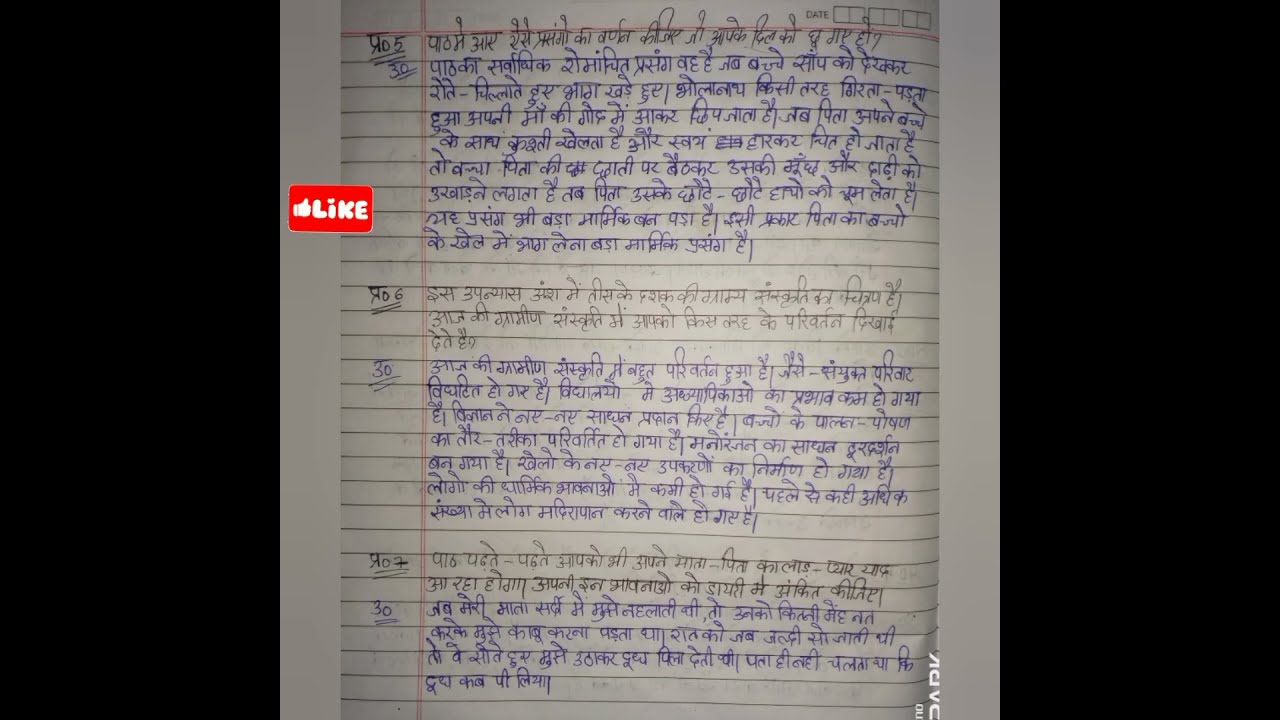 DATE
प्र०5 पाठ मे आए ऐसे प्रसंगो का वर्णन कीजिए जो आपके दिल को छू गए हों?
उ० पाठ का सर्वाधिक रोमांचित प्रसंग वह है जब बच्चे साँप को देखकर
रोते-चिल्लाते हुए भाग खड़े हुए। भोलानाथ किसी तरह गिरता-पड़ता
हुआ अपनी माँ की गोद में आकर छिप जाता है। जब पिता अपने बच्चे
के साथ कुश्ती खेलता है और स्वयं हारकर चित हो जाता है
तो बच्चा पिता की छाती पर बैठकर उसकी मूँछ और दाढ़ी को
उखाड़ने लगता है तब पिता उसके छोटे-छोटे हाथो को चूम लेता है।
LIKE
यह प्रसंग भी बड़ा मार्मिक बन पड़ा है। इसी प्रकार पिता का बच्चो
के खेल में भाग लेना बड़ा मार्मिक प्रसंग है।
प्र०6 इस उपन्यास अंश में तीस के दशक की ग्राम्य संस्कृति का चित्रण है।
आज की ग्रामीण संस्कृति में आपको किस तरह के परिवर्तन दिखाई
देते है?
उ० आज की ग्रामीण संस्कृति में बहुत परिवर्तन हुआ है। जैसे-संयुक्त परिवार
विघटित हो गए है। विद्यालयो मे अध्यापिकाओ का प्रभाव कम हो गया
है। विज्ञान ने नए-नए साधन प्रदान किए है। बच्चो के पालन-पोषण
का तौर-तरीका परिवर्तित हो गया है। मनोरंजन का साधन दूरदर्शन
बन गया है। खेलो के नए-नए उपकरणों का निर्माण हो गया है।
लोगो की धार्मिक भावनाओ मे कमी हो गई है। पहले से कही अधिक
संख्या मे लोग मदिरापान करने वाले हो गए है।
प्र०7 पाठ पढ़ते-पढ़ते आपको भी अपने माता-पिता का लाड-प्यार याद
आ रहा होगा। अपनी इन भावनाओ को डायरी मे अंकित कीजिए।
उ० जब मेरी माता सर्दी में मुझे नहलाती थी, तो उनको कितनी मेहनत
करके मुझे काबू करना पड़ता था। रात को जब जल्दी सो जाती थी
तो वे सोते हुए मुझे उठाकर दूध पिला देती थी। पता ही नही चलता था कि
दूध कब पी लिया।